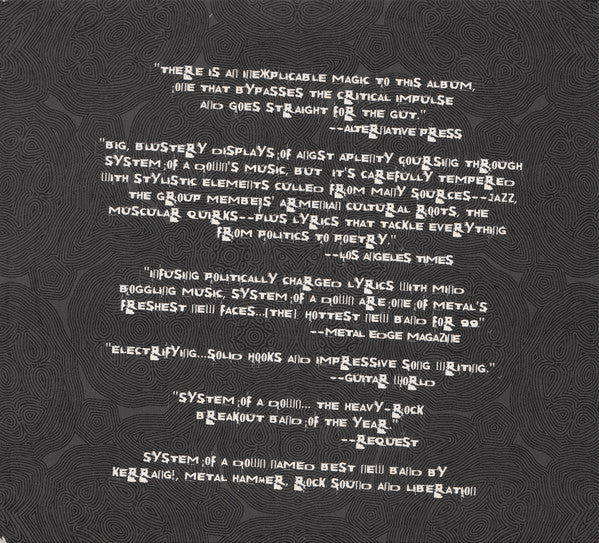 "THERE IS AN INEXPLICABLE MAGIC TO THIS ALBUM,
ONE THAT BYPASSES THE CRITICAL IMPULSE
AND GOES STRAIGHT FOR THE GUT."
--ALTERNATIVE PRESS
"BIG, BLUSTERY DISPLAYS OF ANGST APLENTY COURSING THROUGH
SYSTEM OF A DOWN'S MUSIC, BUT IT'S CAREFULLY TEMPERED
WITH STYLISTIC ELEMENTS CULLED FROM MANY SOURCES--JAZZ,
THE GROUP MEMBERS' ARMENIAN CULTURAL ROOTS, THE
MUSCULAR QUIRKS--PLUS LYRICS THAT TACKLE EVERYTHING
FROM POLITICS TO POETRY."
--LOS ANGELES TIMES
"INFUSING POLITICALLY CHARGED LYRICS WITH MIND
BOGGLING MUSIC, SYSTEM OF A DOWN ARE ONE OF METAL'S
FRESHEST NEW FACES...[THE] HOTTEST NEW BAND FOR 99"
--METAL EDGE MAGAZINE
"ELECTRIFYING...SOLID HOOKS AND IMPRESSIVE SONG WRITING."
--GUITAR WORLD
"SYSTEM OF A DOWN... THE HEAVY-ROCK
BREAKOUT BAND OF THE YEAR."
--REQUEST
SYSTEM OF A DOWN NAMED BEST NEW BAND BY
KERRANG!, METAL HAMMER, ROCK SOUND AND LIBERATION